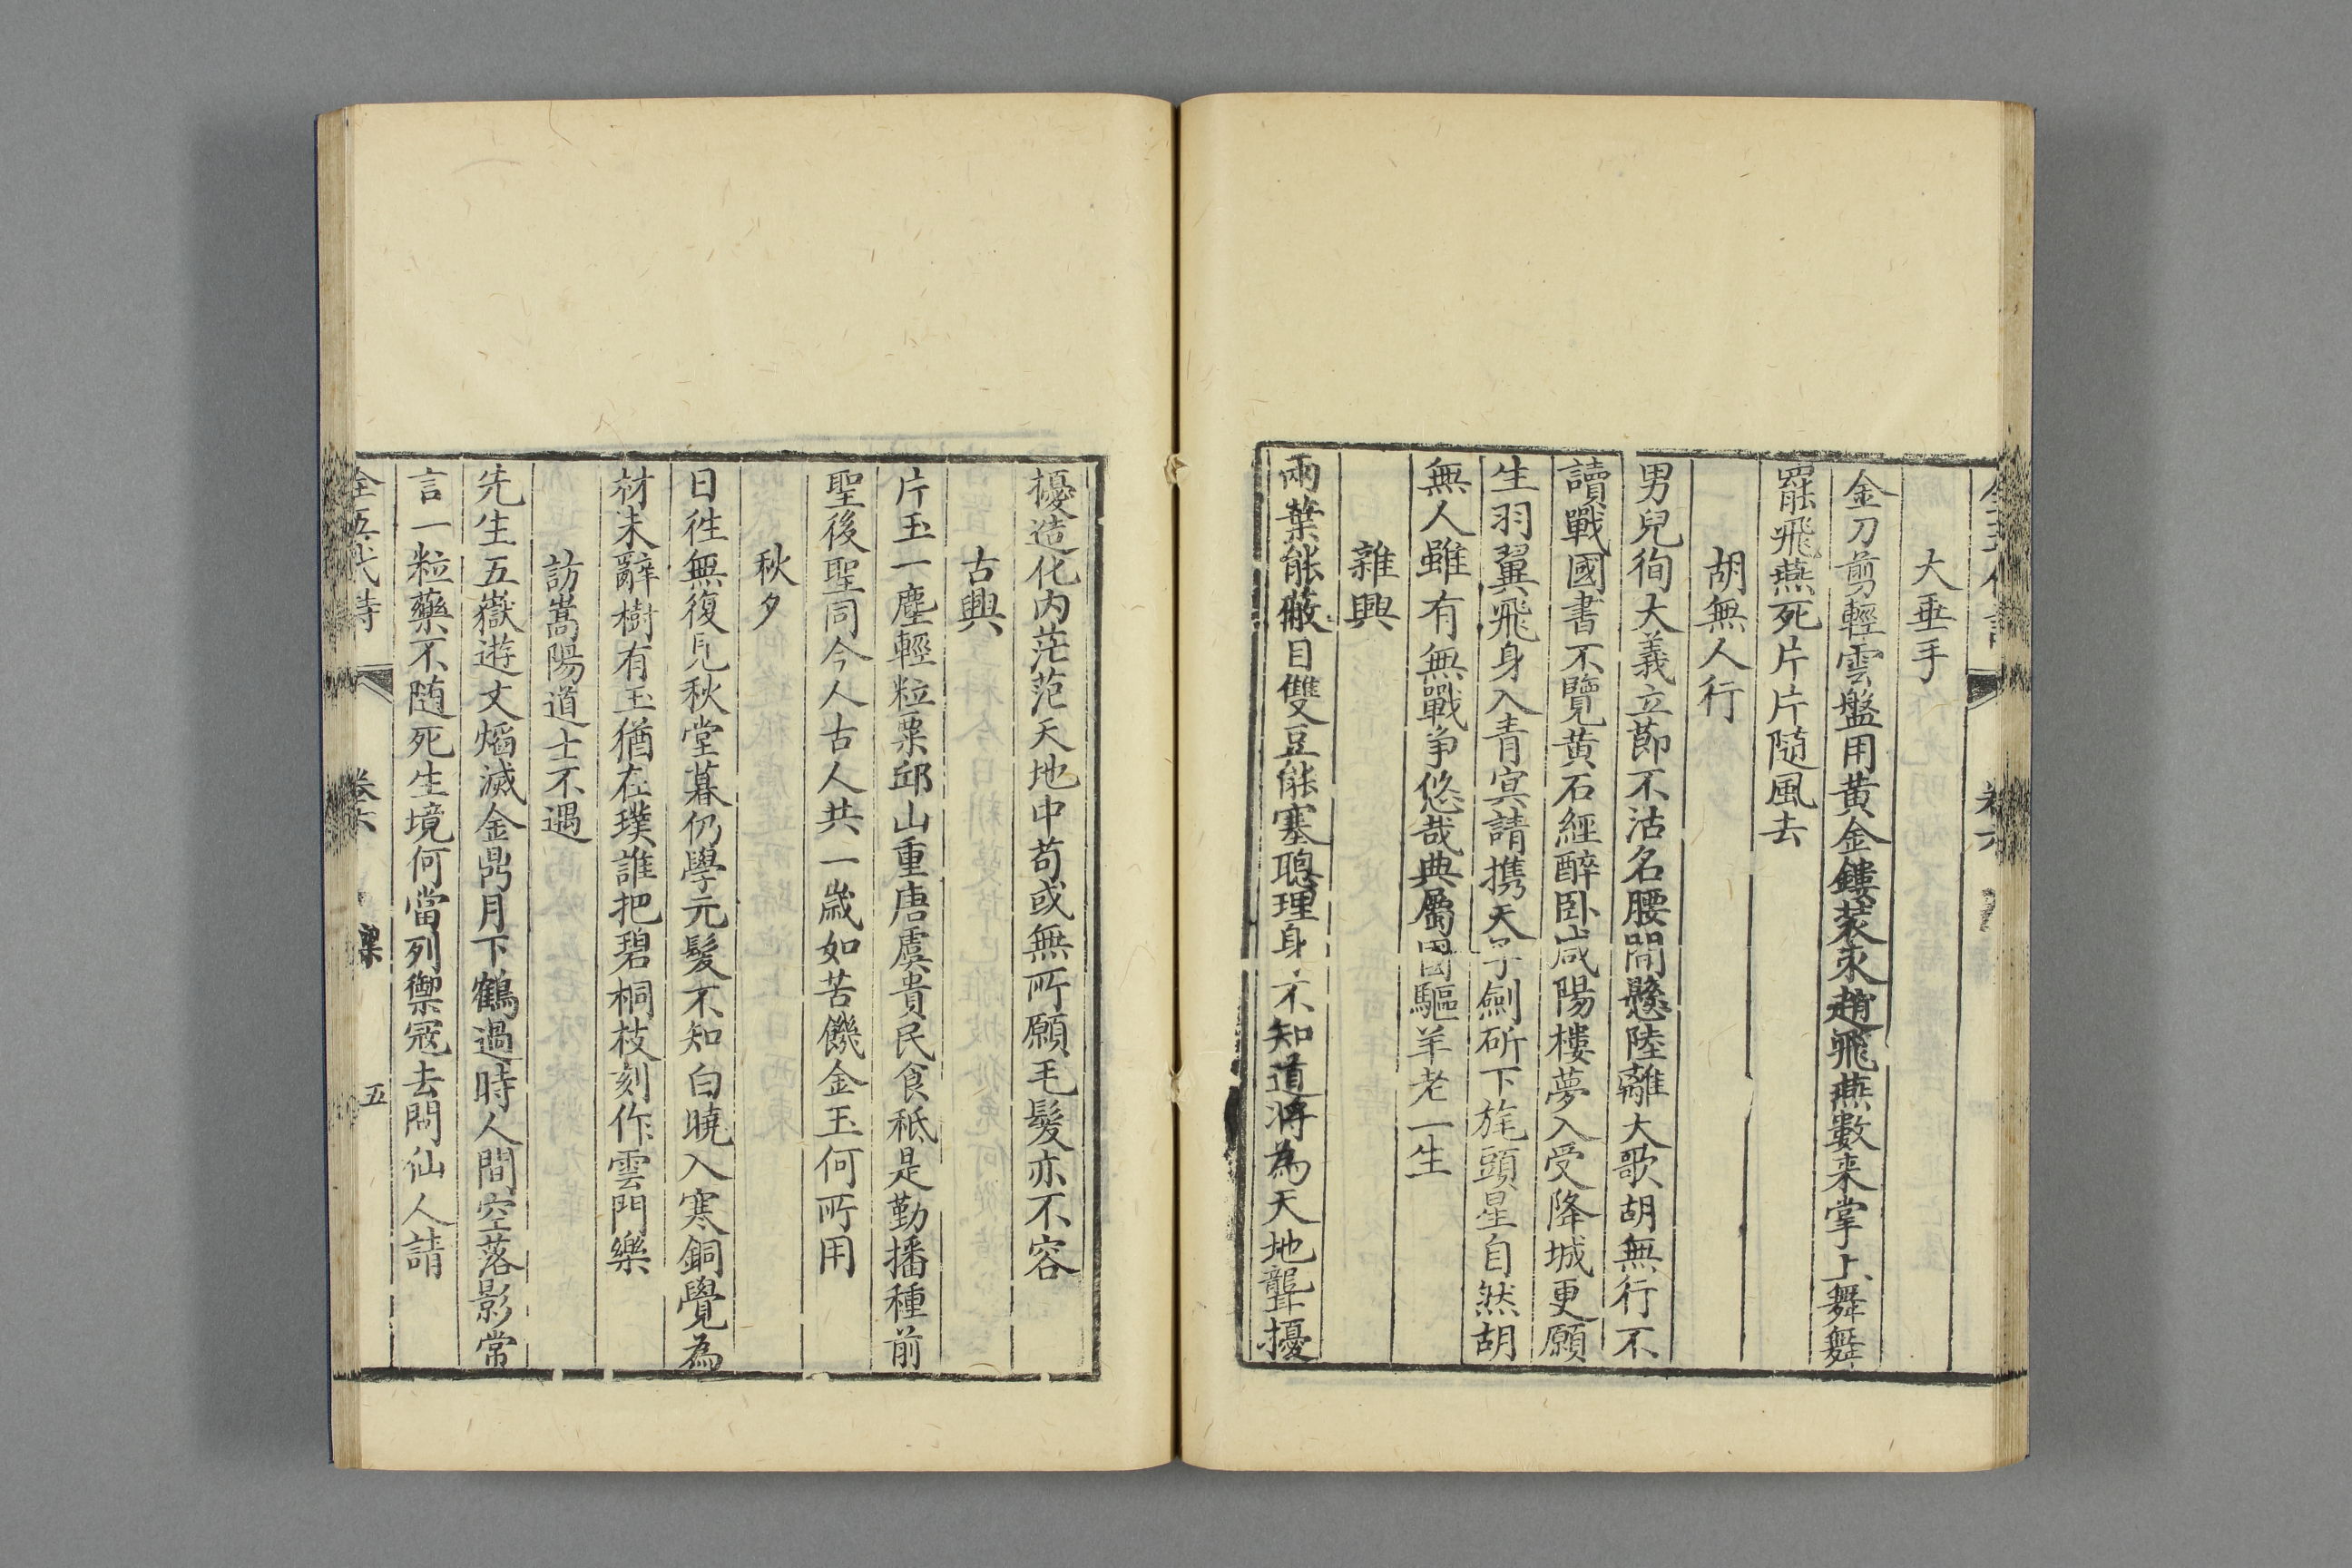 大垂手
金刀剪輕雲盤用黄金鏤装束趙飛燕數来掌上舞舞
罷飛燕死片片隨風去
胡無人行
男兒徇大義立節不沽名腰間懸陸離大歌胡無行不
讀戰國書不覽黄石經醉卧咸陽樓夢入受降城更願
生羽翼飛身入青冥請携天子劍斫下旄頭星自然胡
無人雖有無戰争悠哉典屬國驅羊老一生
雜興
兩葉能蔽目雙豆能塞聰理身不知道将為天地聾擾
擾造化内茫茫天地中苟或無所願毛髮亦不容
古興
片玉一塵輕粒粟邱山重唐虞貴民食秪是勤播種前
聖後聖同今人古人共一歲如苦饑金玉何所用
秋夕
日徃無復見秋堂暮仍學元髮不知白曉入寒銅覺為
材未辭樹有玉猶在璞誰把碧桐枝刻作雲門樂
訪嵩陽道士不遇
先生五嶽遊文焰滅金鼎月下鶴過時人間空落影常
言一粒藥不随死生境何當列禦寇去問仙人請
全五代詩 卷六 梁 五